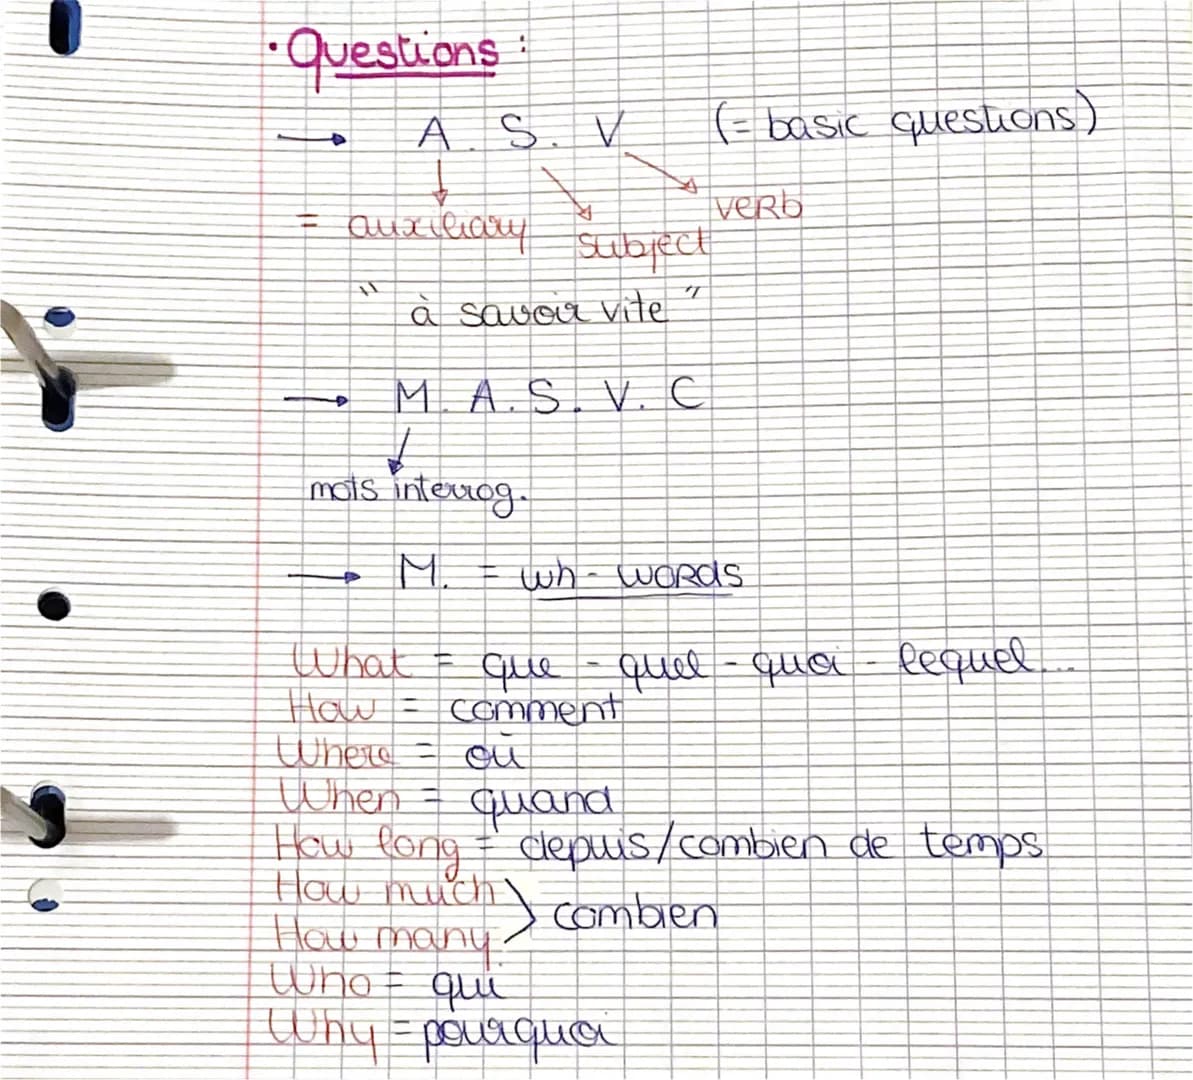 • Questions :
→ A. S. V (= basic questions)
verb
= auxiliary
subject
" à savoir vite "
→ M. A. S. V. C
mots interrog.
→ M. = wh - words
What = que - quel - quoi - lequel...
How = comment
Where = où
When = quand
How long = depuis/combien de temps
How much
} combien
How many
Who = qui
Why = pourquoi